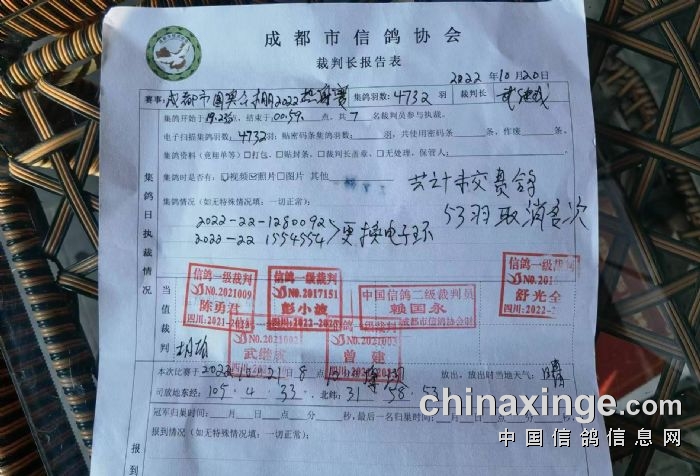 成都市信鸽协会
裁判长报告表
2022年10月20日
赛事: 成都市国 2022 赛 集鸽羽数: 4732 羽 裁判长
集鸽开始于19:23点,结束于00:59点,共7名裁判员参与执裁。
电子扫描集鸽羽数: 4732羽;贴密码条集鸽羽数: 羽,共使用密码条 条,作废 条。
集鸽资料(竟翔单等)□打包、□贴封条、□裁判长盖章、□无处理、保管人:
集鸽时是否有: ☑视频☑照片□图片 其他
共计未交费鸽
53羽取消名次
集鸽情况(如无特殊情况填:一切正常):
2022-22-1280092
2022-22 1554554 >更换电子环
集鸽日执裁情况
信鸽一级裁判
NO.2021009
陈勇君
四川:2021-2
信鸽一级裁判
NO.2017151
彭小波
四川:2021-202
中国信鸽二级裁判员
赖国永
成都市信鸽协会制
信鸽一级裁判
NO.201
舒光全
四川:2022-2
NO.2021002
武继成
四川
NO.2021003
曾建
四川
当值裁判
本次比赛于2022 21 8点 放出时当地天气: 晴
司放地东经: 105.4.33 北纬: 31.58.53
冠军归巢时间: 月 日 点 分 秒,最后一名归巢时间: 月
报到情况(如无特殊情况填:一切正常):
报到
chinaxinge.com
中国信鸽信息网